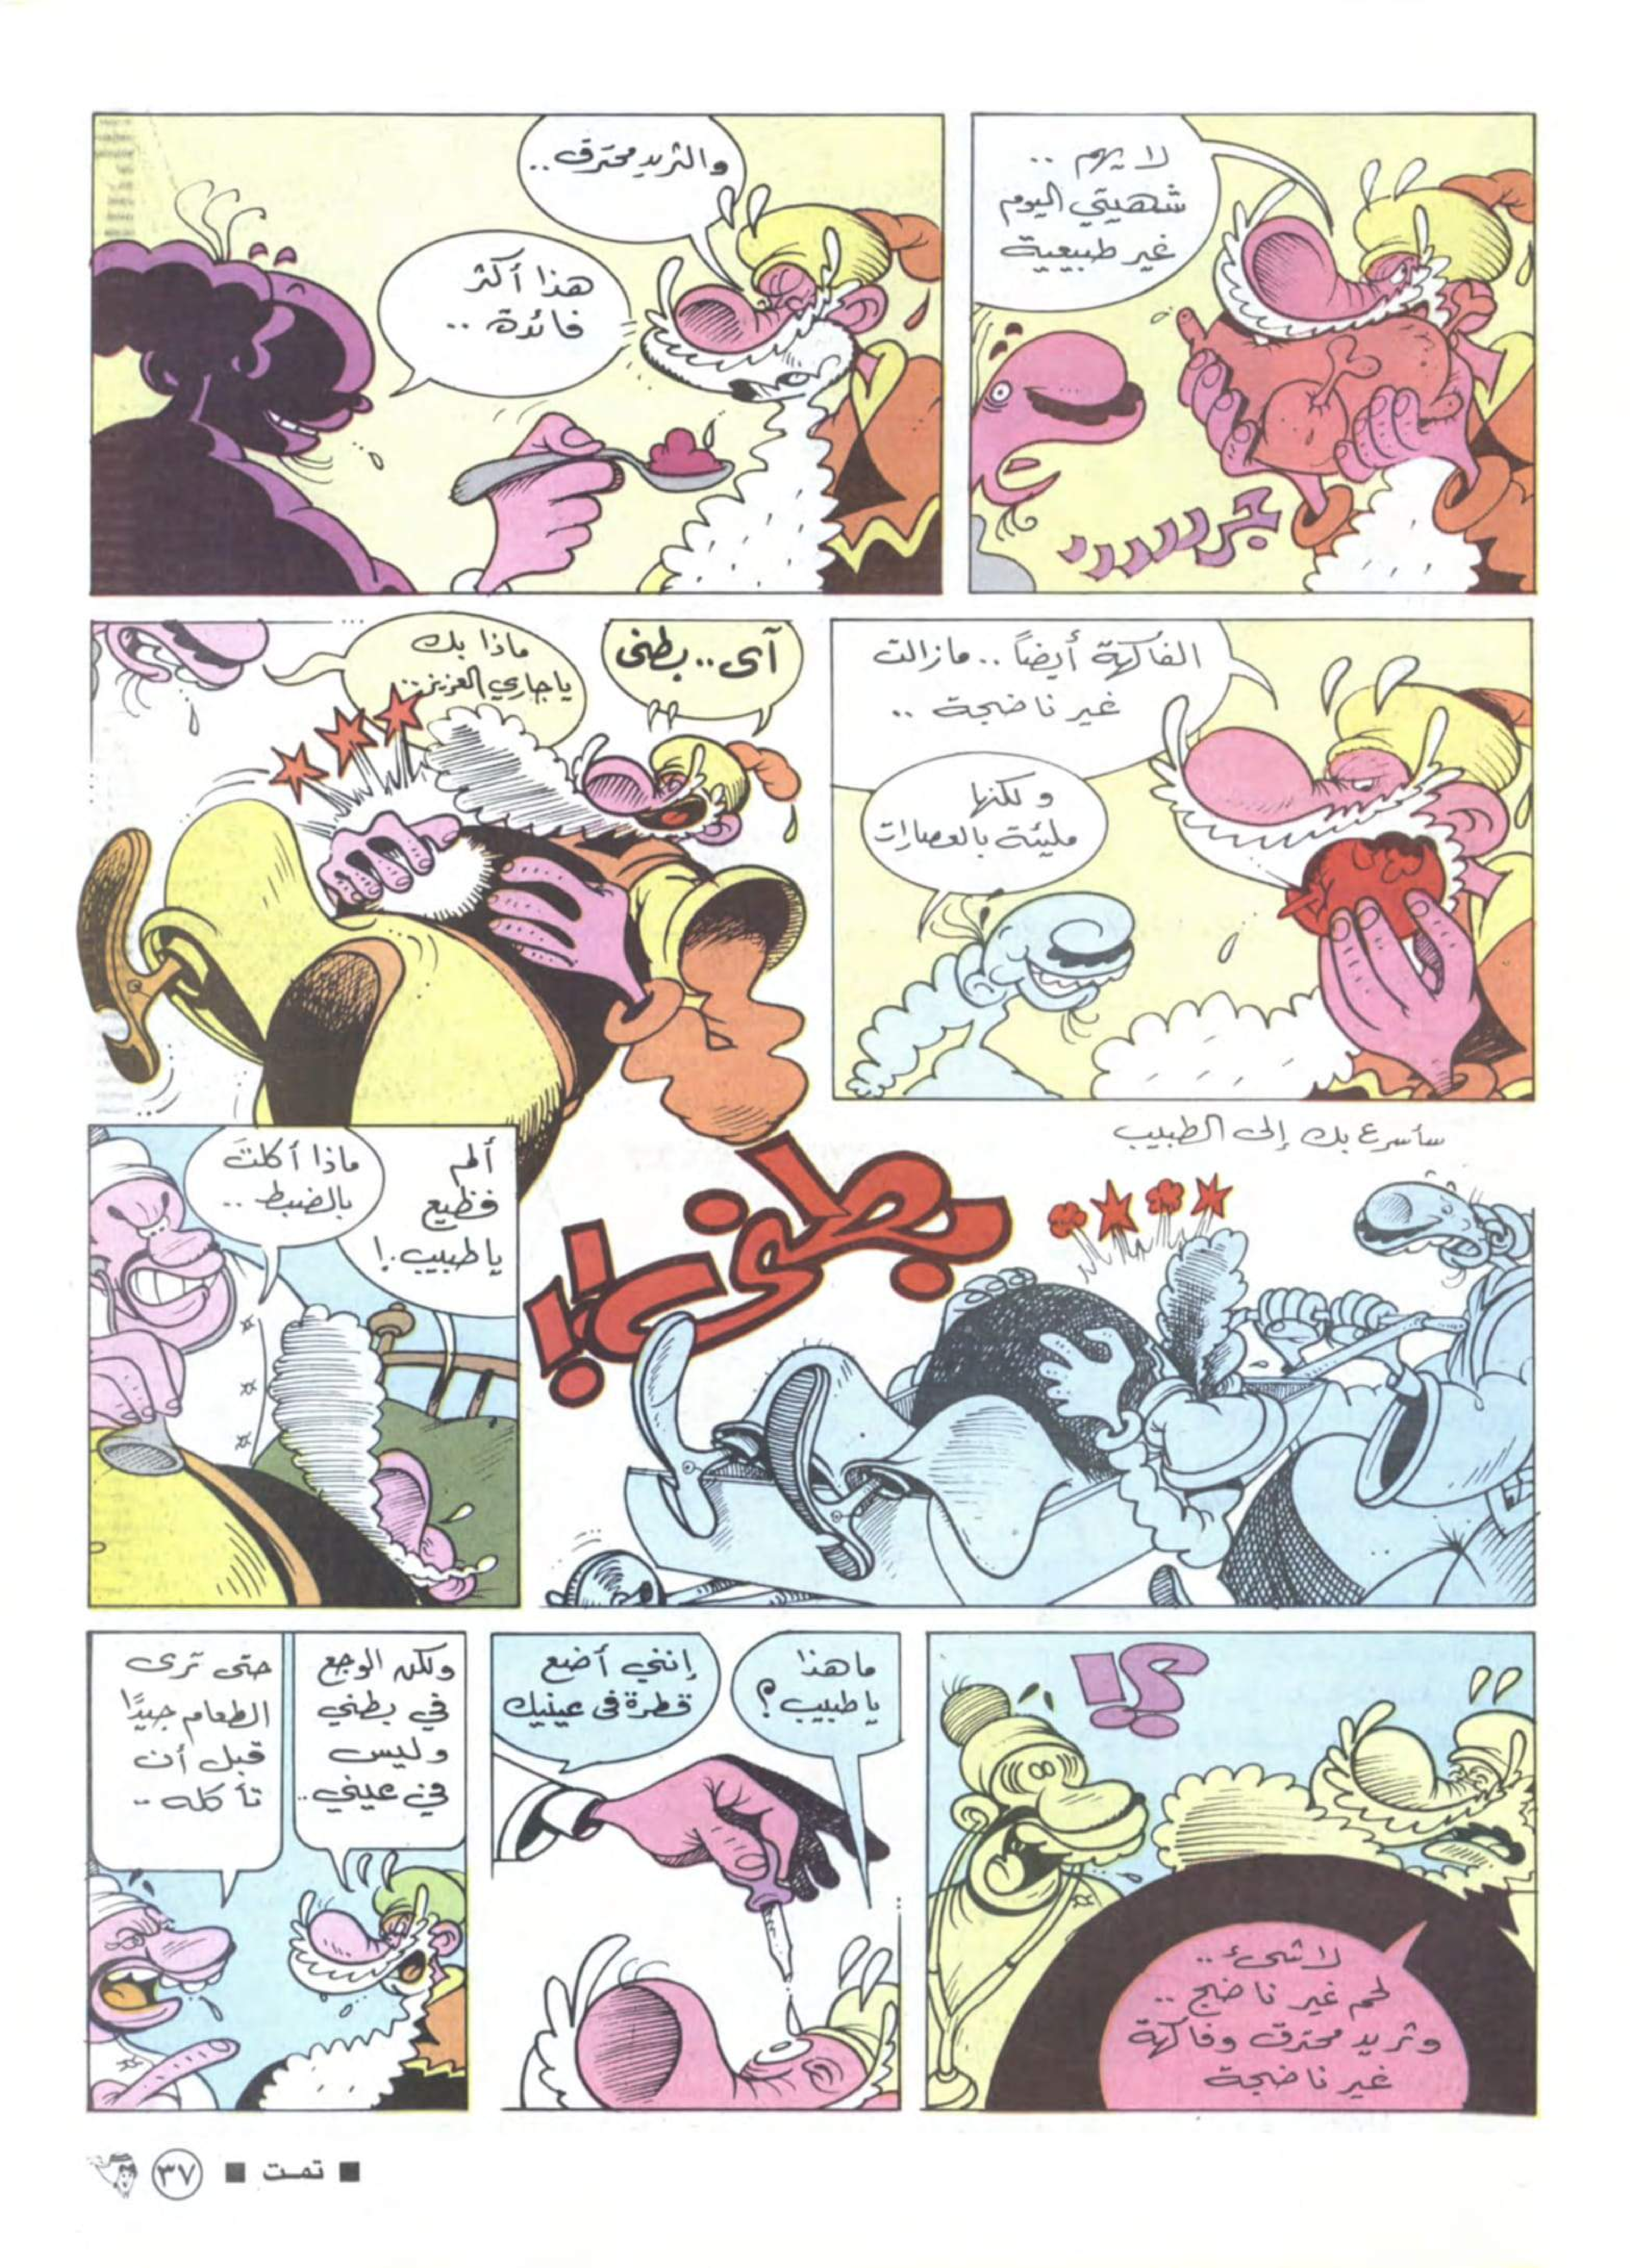 لا يهم ..
شهيتي اليوم
غير طبيعية
جررررر
والثريد محترق ..
هذا أكثر
فائدة ..
الفاكهة أيضاً .. مازالت
غير ناضجة ..
ولكنها
مليئة بالعصارات
آى .. بطنى
ماذا بك
ياجاري العزيز ..
سأسرع بك إلى الطبيب
بطنى !!
ألم
فظيع
يا طبيب .!
ماذا أكلتَ
بالضبط ..
؟!
لا شىء ..
لحم غير ناضج ..
وثريد محترق وفاكهة
غير ناضجة
ما هذا
يا طبيب ؟
إنني أضع
قطرة فى عينيك
ولكن الوجع
في بطني
وليس
في عيني ..
حتى ترى
الطعام جيدًا
قبل أن
تأكله ..
■ تمت ■ ٣٧